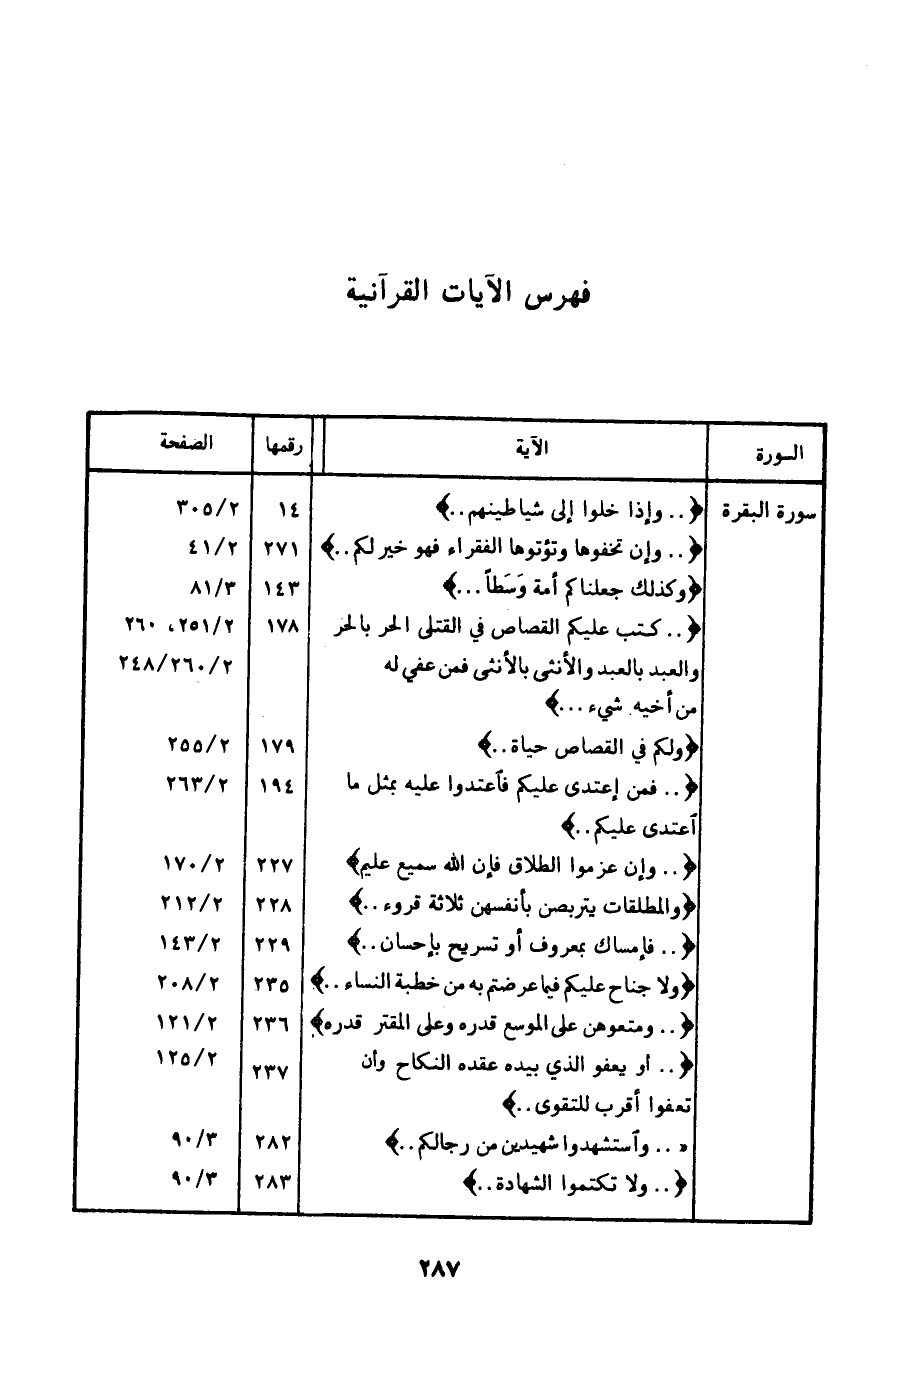 فهرس الآيات القرآنية
السورة الآية رقمها الصفحة
سورة البقرة ﴿.. وإذا خلوا إلى شياطينهم..﴾ ١٤ ٣٠٥/٢
﴿.. وإن تخفوها وتؤتوها الفقراء فهو خير لكم..﴾ ٢٧١ ٤١/٢
﴿وكذلك جعلناكم أمة وَسَطاً...﴾ ١٤٣ ٨١/٣
﴿.. كتب عليكم القصاص في القتلى الحر بالحر ١٧٨ ٢٥١/٢، ٢٦٠
والعبد بالعبد والأنثى بالأنثى فمن عفي له ٢٤٨/٢٦٠/٢
من أخيه شيء...﴾
﴿ولكم في القصاص حياة..﴾ ١٧٩ ٢٥٥/٢
﴿.. فمن إعتدى عليكم فٱعتدوا عليه بمثل ما ١٩٤ ٢٦٣/٢
ٱعتدى عليكم..﴾
﴿.. وإن عزموا الطلاق فإن الله سميع عليم﴾ ٢٢٧ ١٧٠/٢
﴿والمطلقات يتربصن بأنفسهن ثلاثة قروء..﴾ ٢٢٨ ٢١٢/٢
﴿.. فإمساك بمعروف أو تسريح بإحسان..﴾ ٢٢٩ ١٤٣/٢
﴿ولا جناح عليكم فيما عرضتم به من خطبة النساء..﴾ ٢٣٥ ٢٠٨/٢
﴿.. ومتعوهن على الموسع قدره وعلى المقتر قدره﴾ ٢٣٦ ١٢١/٢
﴿.. أو يعفو الذي بيده عقده النكاح وأن ٢٣٧ ١٢٥/٢
تعفوا أقرب للتقوى..﴾
« .. وٱستشهدوا شهيدين من رجالكم..﴾ ٢٨٢ ٩٠/٣
﴿.. ولا تكتموا الشهادة..﴾ ٢٨٣ ٩٠/٣
٢٨٧